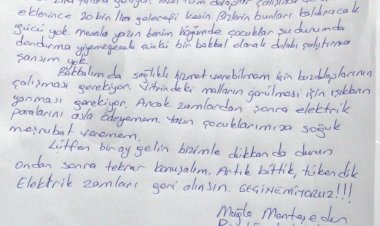 eklenince 20 bin lira geleceği kesin. Bizlerin bunları kaldıracak
gücü yok. mesela yazın benim köyümde çocuklar şu durumda
dondurma yiyemeyecek çünkü bir bakkal olarak dolabı çalıştırma
şansım yok.
Bakkalımda sağlıklı hizmet verebilmem için buzdolaplarının
çalışması gerekiyor. Vitrindeki malların görülmesi için ışıkların
yanması gerekiyor. Ancak zamlardan sonra elektrik
paralarını asla ödeyemem. Yazın çocuklarımıza soğuk
meşrubat veremem.
Lütfen bir ay gelin bizimle dükkanda durun
ondan sonra tekrar konuşalım. Artık bittik, tükendik
Elektrik zamları geri alınsın. GEÇİNEMİYORUZ!!!
Muğla Menteşe'den